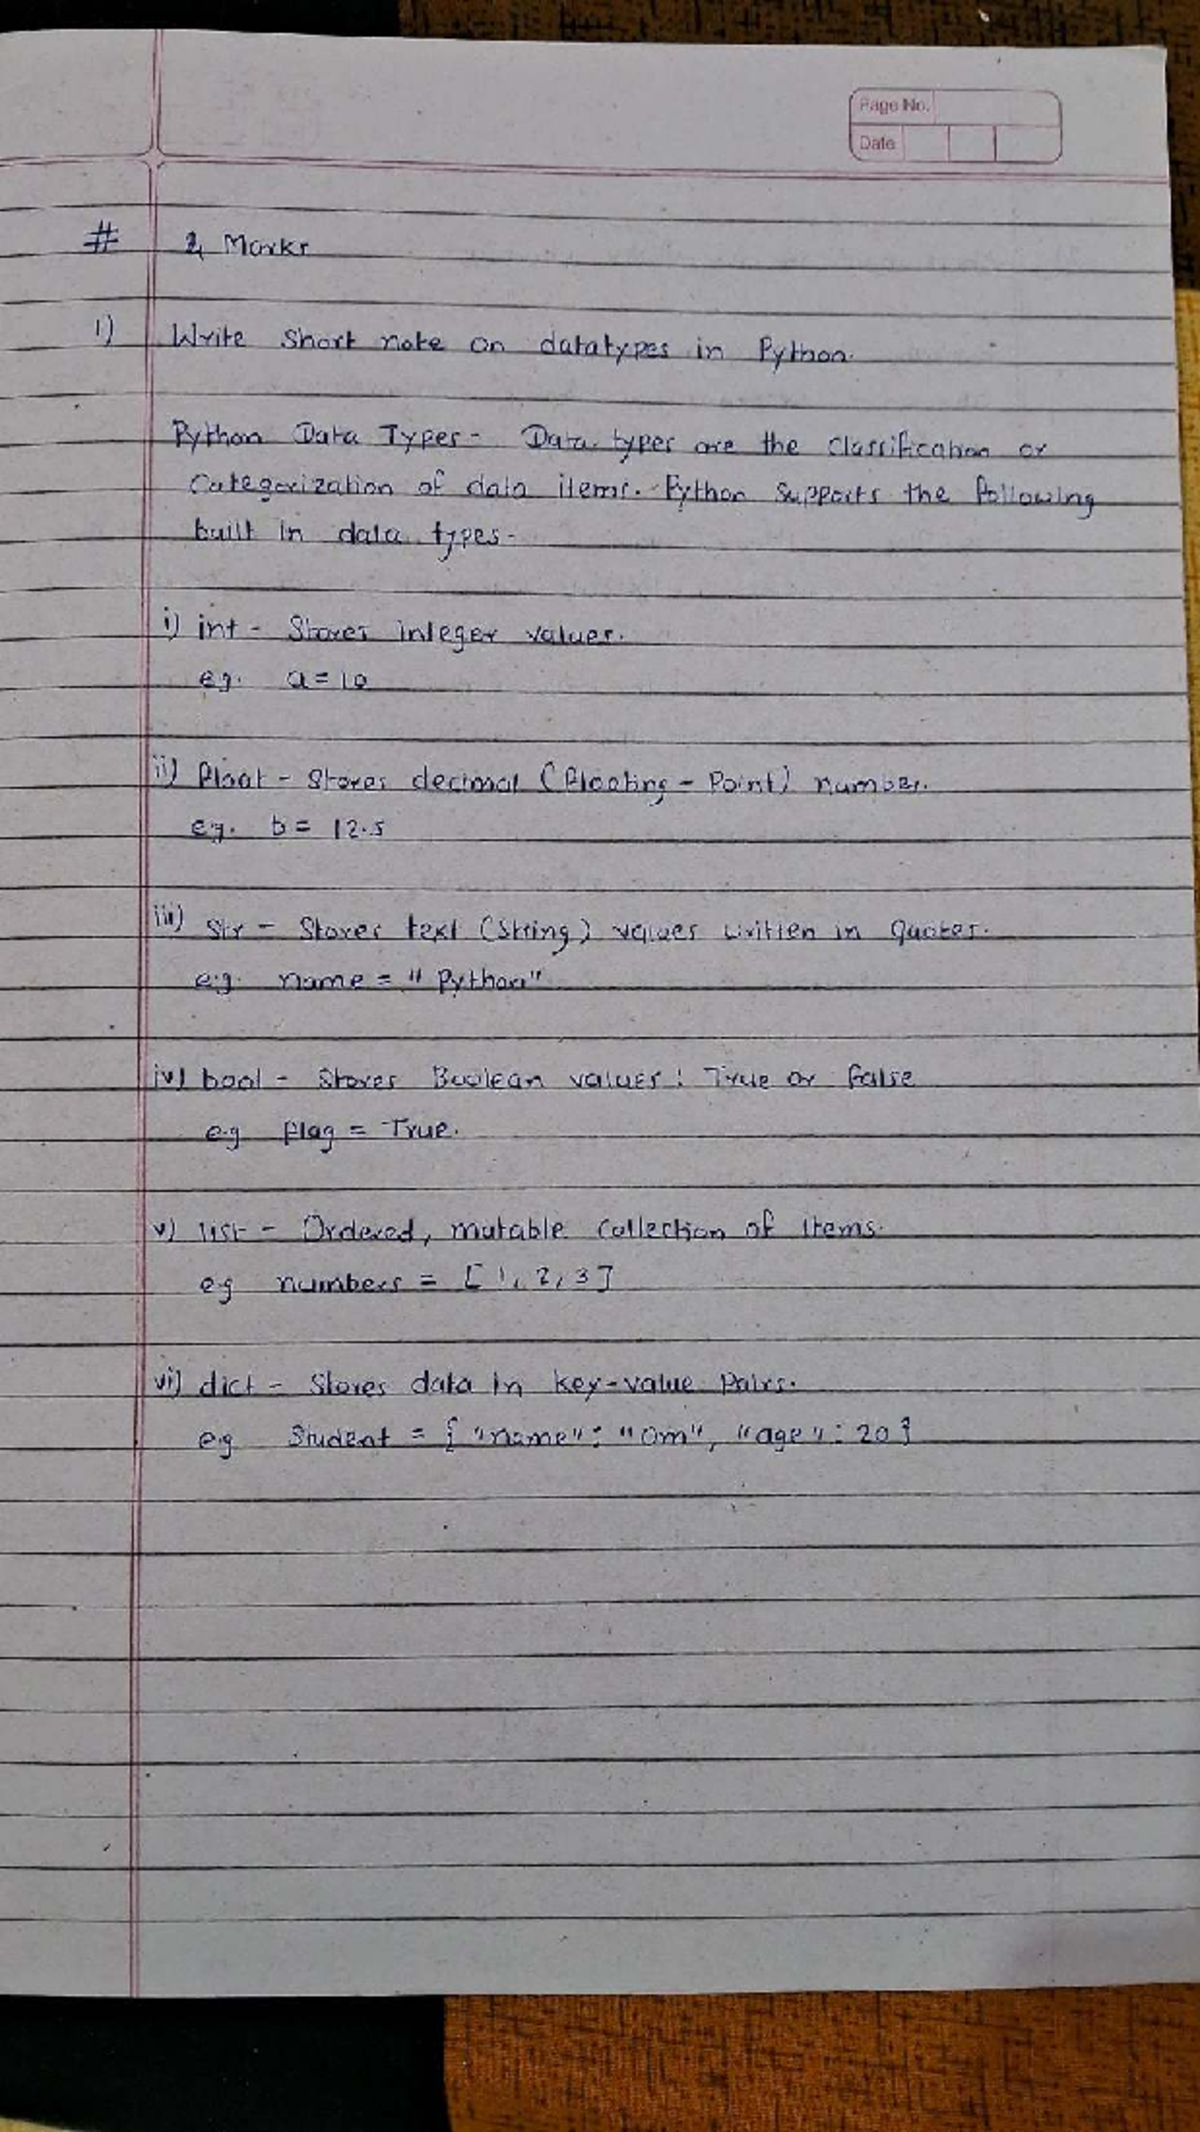 Page No.
Date
# 2 Marks
1) Write short note on datatypes in Python.
Python Data Types - Data types are the classification or
Categorization of data items. Python supports the following
built in data types -
i) int - Stores integer values.
eg. a = 10
ii) float - Stores decimal (floating - Point) number.
eg. b = 12.5
iii) str - Stores text (string) values written in quotes.
e.g. name = "Python"
iv) bool - Stores Boolean values : True or false
e.g flag = True.
v) list - Ordered, mutable collection of items.
eg numbers = [1, 2, 3]
vi) dict - Stores data in key-value pairs.
e.g Student = { "name" : "Om", "age" : 20 }